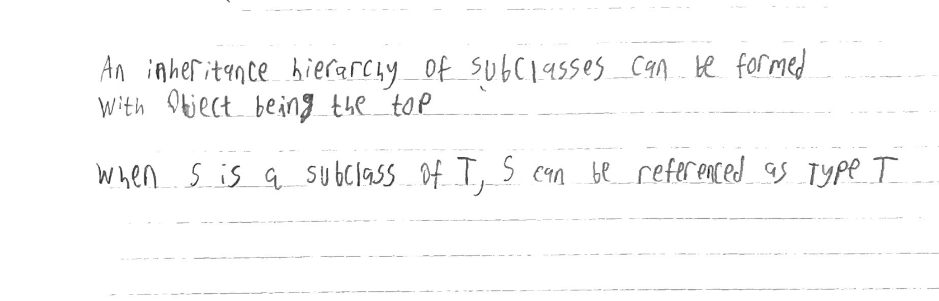 An inheritance hierarchy of subclasses can be formed
with Object being the top
when S is a subclass of T, S can be referenced as Type T